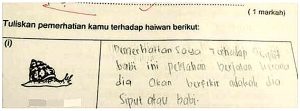 ( 1 markah)
Tuliskan pemerhatian kamu terhadap haiwan berikut:
(i)
Pemerhatian saya terhadap
babi ini perlahan berjalan kerana
dia akan berfikir adakah dia
Siput atau babi.